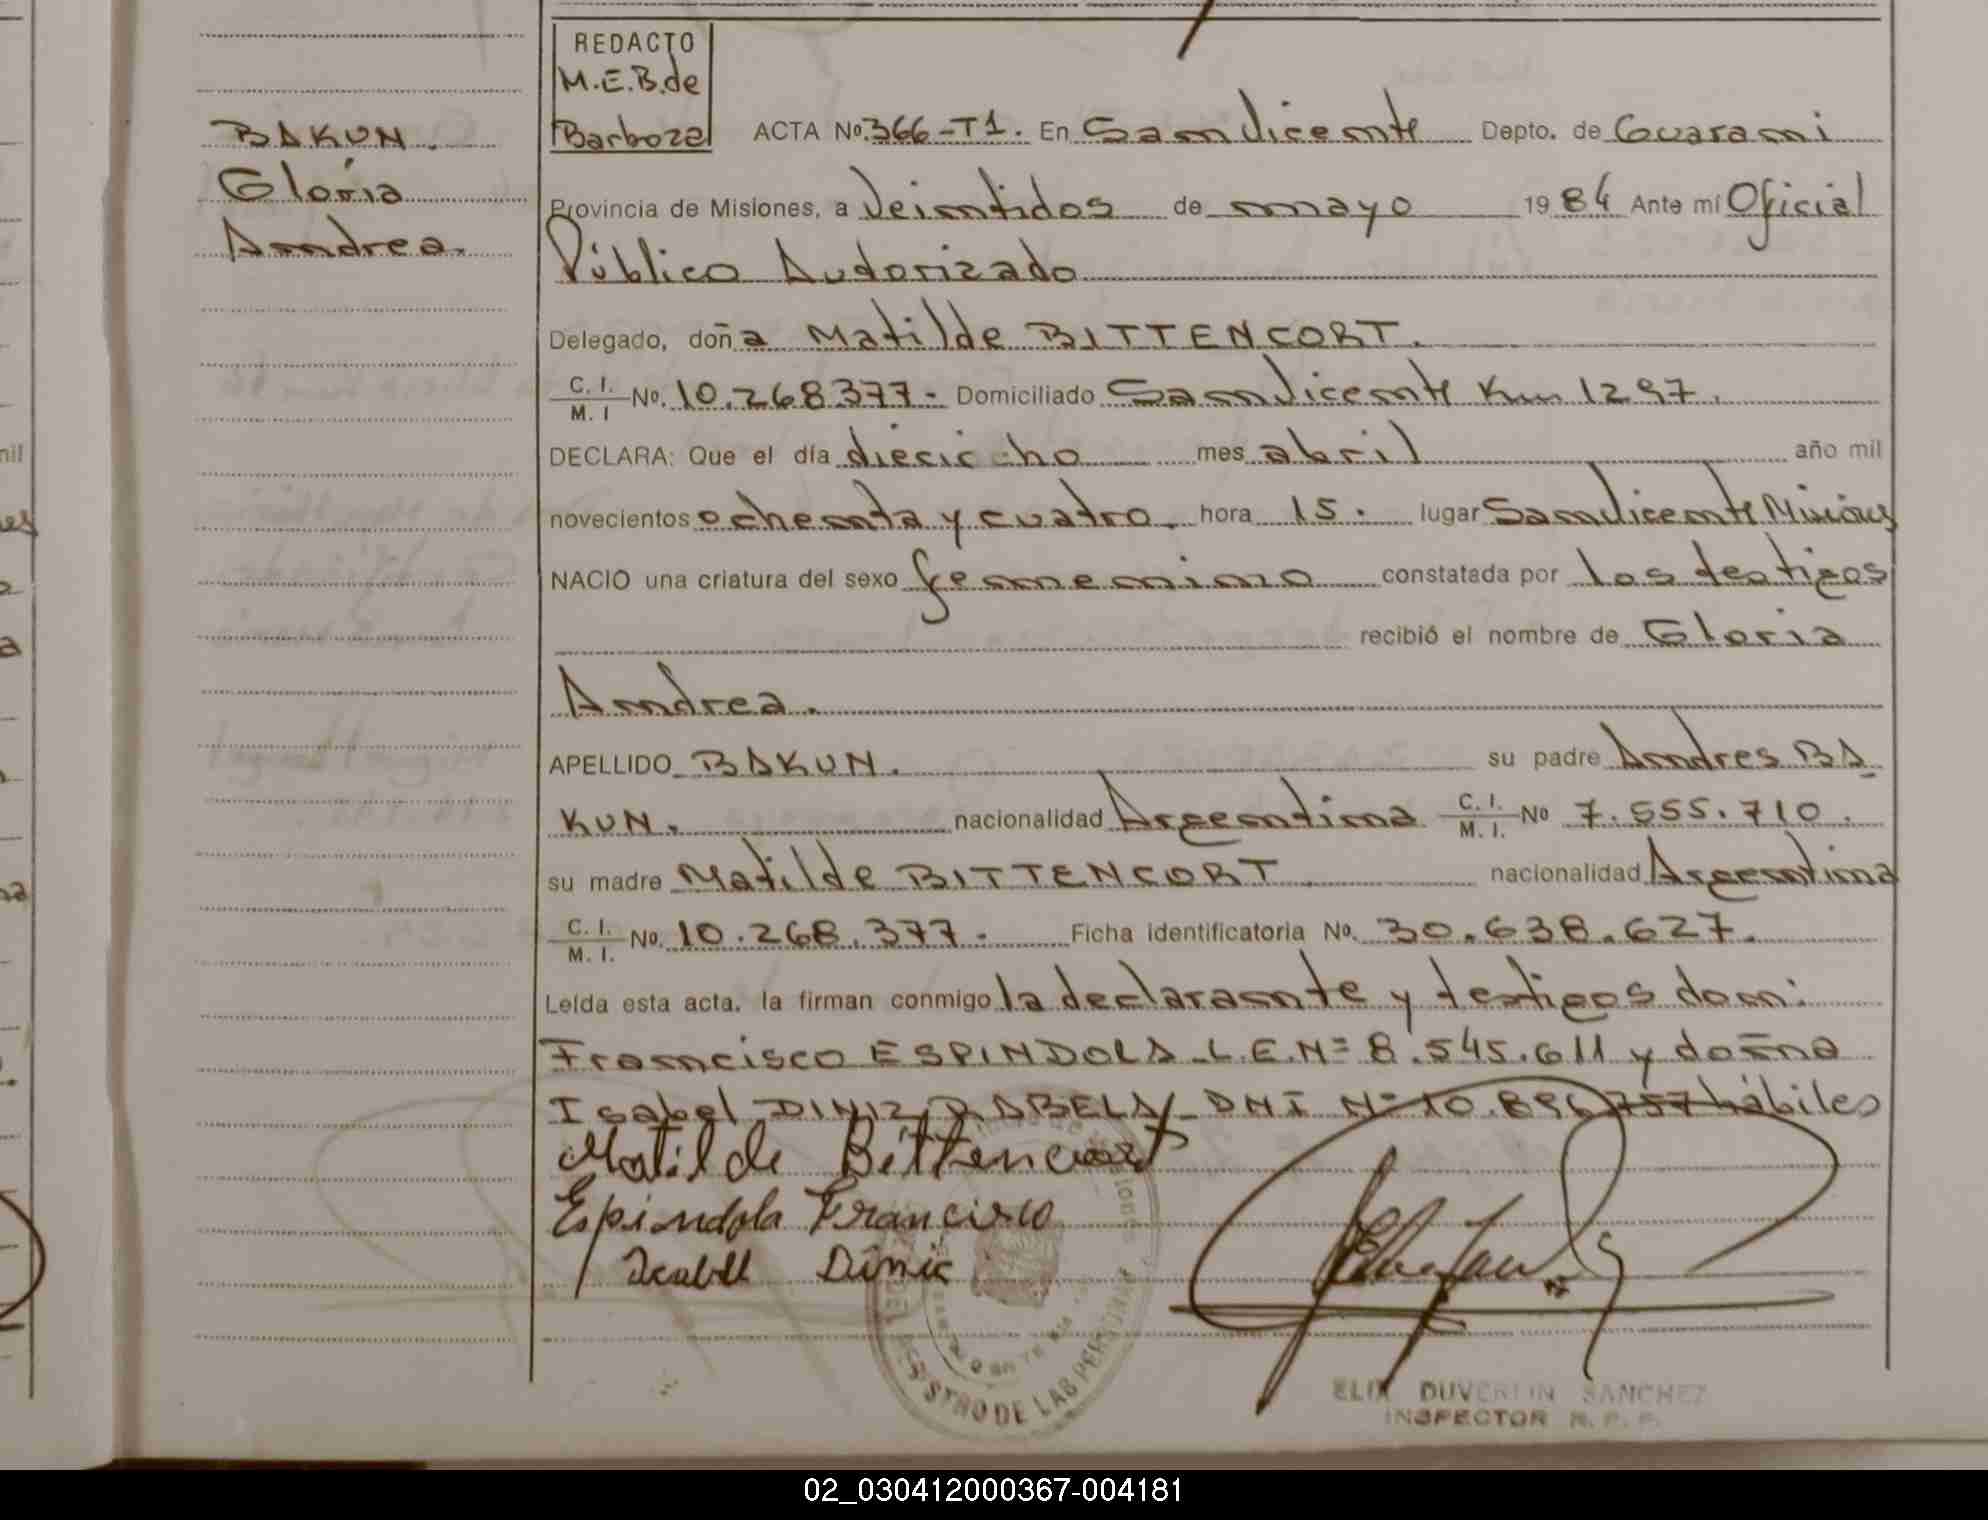 BAKUN.
Gloria
Andrea.
REDACTO
M.E.B. de
Barboza
ACTA Nº 366-T1. En San Vicente Depto. de Guarani
Provincia de Misiones, a Veintidos de mayo 1984 Ante mí Oficial
Público Autorizado
Delegado, doña Matilde BITTENCORT.
C. I. / M. I No. 10.268377. Domiciliado San Vicente Km 1297.
DECLARA: Que el día dieciocho mes abril año mil
novecientos ochenta y cuatro. hora 15. lugar San Vicente Misiones
NACIO una criatura del sexo femenino constatada por los testigos
recibió el nombre de Gloria
Andrea.
APELLIDO BAKUN. su padre Andres BA
KUN. nacionalidad Argentina C. I. / M. I. Nº 7.555.710.
su madre Matilde BITTENCORT nacionalidad Argentina
C. I. / M. I. No. 10.268.377. Ficha identificatoria No. 30.638.627.
Leída esta acta, la firman conmigo la declarante y testigos don:
Francisco ESPINDOLA - L.E.Nº 8.545.611 y doña
Isabel DINIZ RABELA - DNI Nº 10.896.757 hábiles
Matilde Bittencort
Espindola Francisco
Dinic
REGISTRO DE LAS PERSONAS
ELIX DUVERLIN SANCHEZ
INSPECTOR R. P. P.
02_030412000367-004181